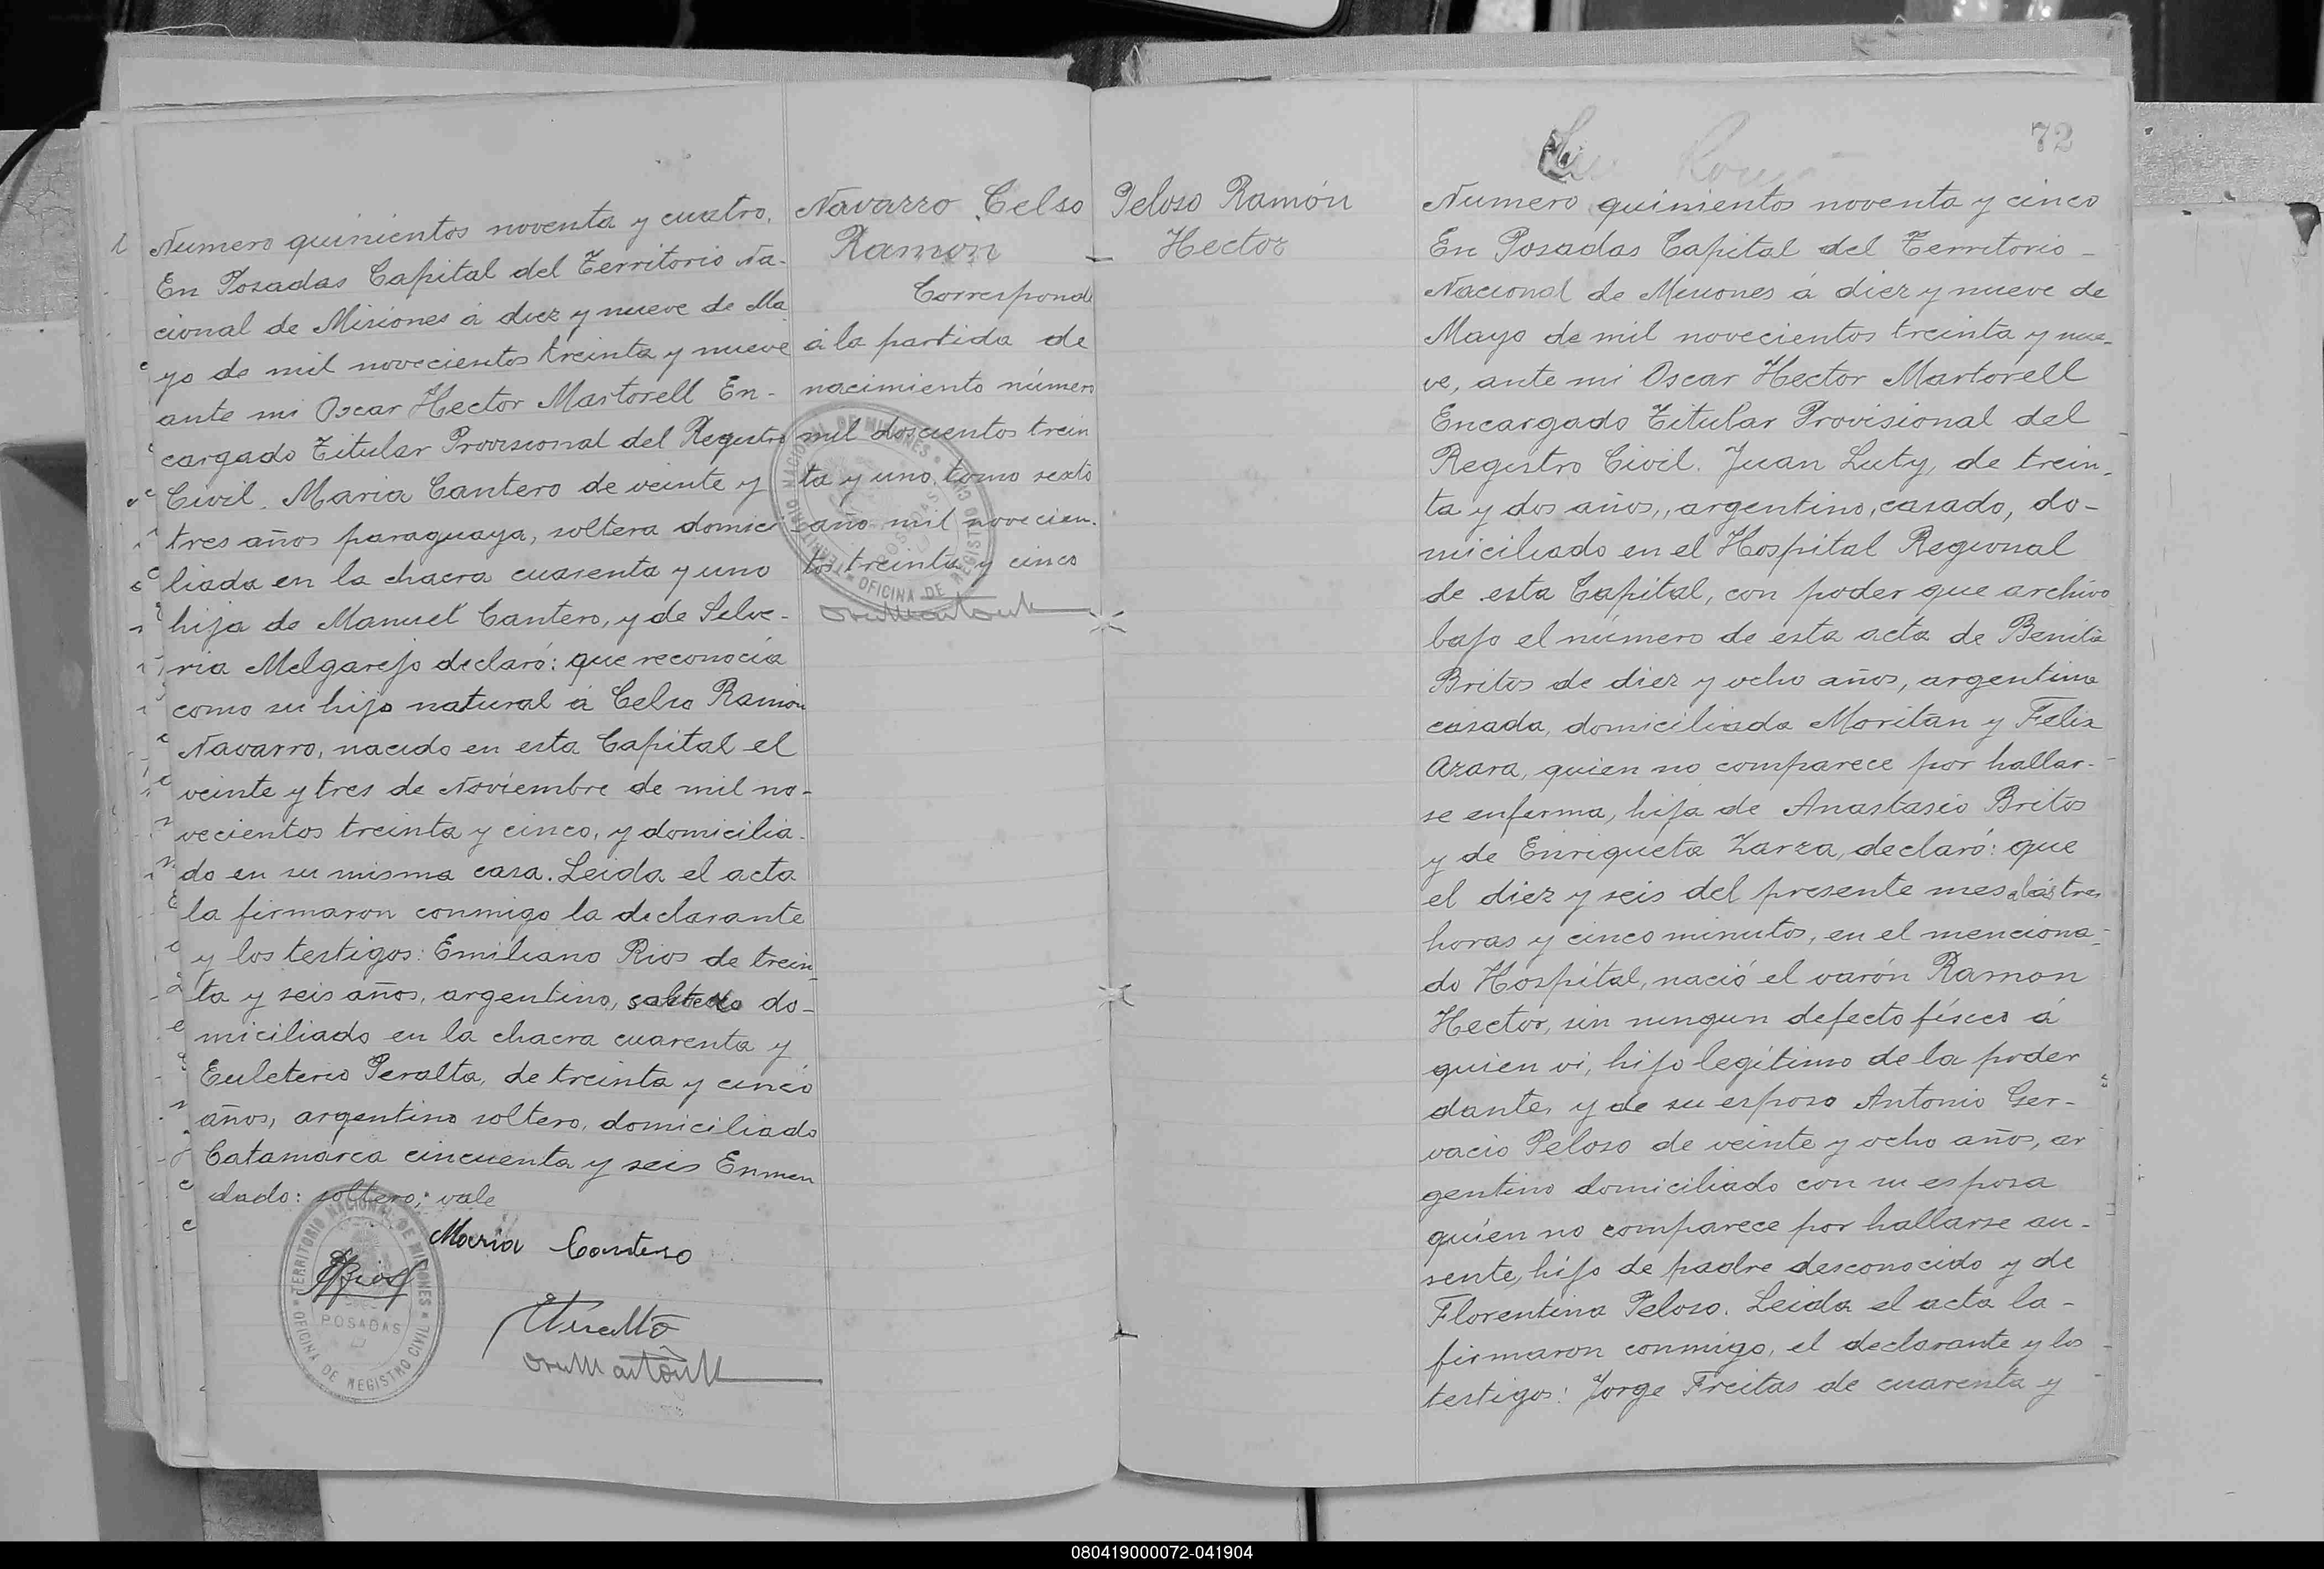 Numero quinientos noventa y cuatro.
En Posadas Capital del Territorio Na-
cional de Misiones á diez y nueve de Ma
yo de mil novecientos treinta y nueve
ante mi Oscar Hector Martorell En-
cargado Titular Provisional del Registro
Civil. Maria Cantero de veinte y
tres años paraguaya, soltera domici
liada en la chacra cuarenta y uno
hija de Manuel Cantero, y de Selve-
ria Melgarejo declaró: que reconocia
como su hijo natural á Celso Ramón
Navarro, nacido en esta Capital el
veinte y tres de Noviembre de mil no-
vecientos treinta y cinco, y domicilia-
do en su misma casa. Leida el acta
la firmaron conmigo la declarante
y los testigos: Emiliano Rios de trein-
ta y seis años, argentino, soltero do-
miciliado en la chacra cuarenta y
Euleterio Peralta, de treinta y cinco
años, argentino soltero, domiciliado
Catamarca cincuenta y seis Enmen
dado: soltero; vale
Maria Cantero
TERRITORIO NACIONAL DE MISIONES
POSADAS
OFICINA DE REGISTRO CIVIL
Navarro Celso
Ramon
Corresponde
á la partida de
nacimiento número
mil doscientos trein
ta y uno tomo sexto
año mil novecien-
tos treinta y cinco
TERRITORIO NACIONAL DE MISIONES
POSADAS
OFICINA DE REGISTRO CIVIL
Peloso Ramón
Hector
72
Numero quinientos noventa y cinco
En Posadas Capital del Territorio -
Nacional de Misiones á diez y nueve de
Mayo de mil novecientos treinta y nue-
ve, ante mi Oscar Hector Martorell
Encargado Titular Provisional del
Registro Civil. Juan Luty, de trein-
ta y dos años, argentino, casado, do-
miciliado en el Hospital Regional
de esta Capital, con poder que archivo
bajo el número de esta acta de Benita
Britos de diez y ocho años, argentina
casada, domiciliada Moritan y Felix
Azara, quien no comparece por hallar-
se enferma, hija de Anastasio Britos
y de Enriqueta Zarza, declaró: que
el diez y seis del presente mes a las tres
horas y cinco minutos, en el menciona-
do Hospital, nació el varón Ramon
Hector, sin ningun defecto físico á
quien vi, hijo legítimo de la poder
dante, y de su esposo Antonio Ger-
vacio Peloso de veinte y ocho años, ar
gentino domiciliado con su esposa
quien no comparece por hallarse au-
sente, hijo de padre desconocido y de
Florentina Peloso. Leida el acta la -
firmaron conmigo, el declarante y los
testigos: Jorge Freitas de cuarenta y
080419000072-041904